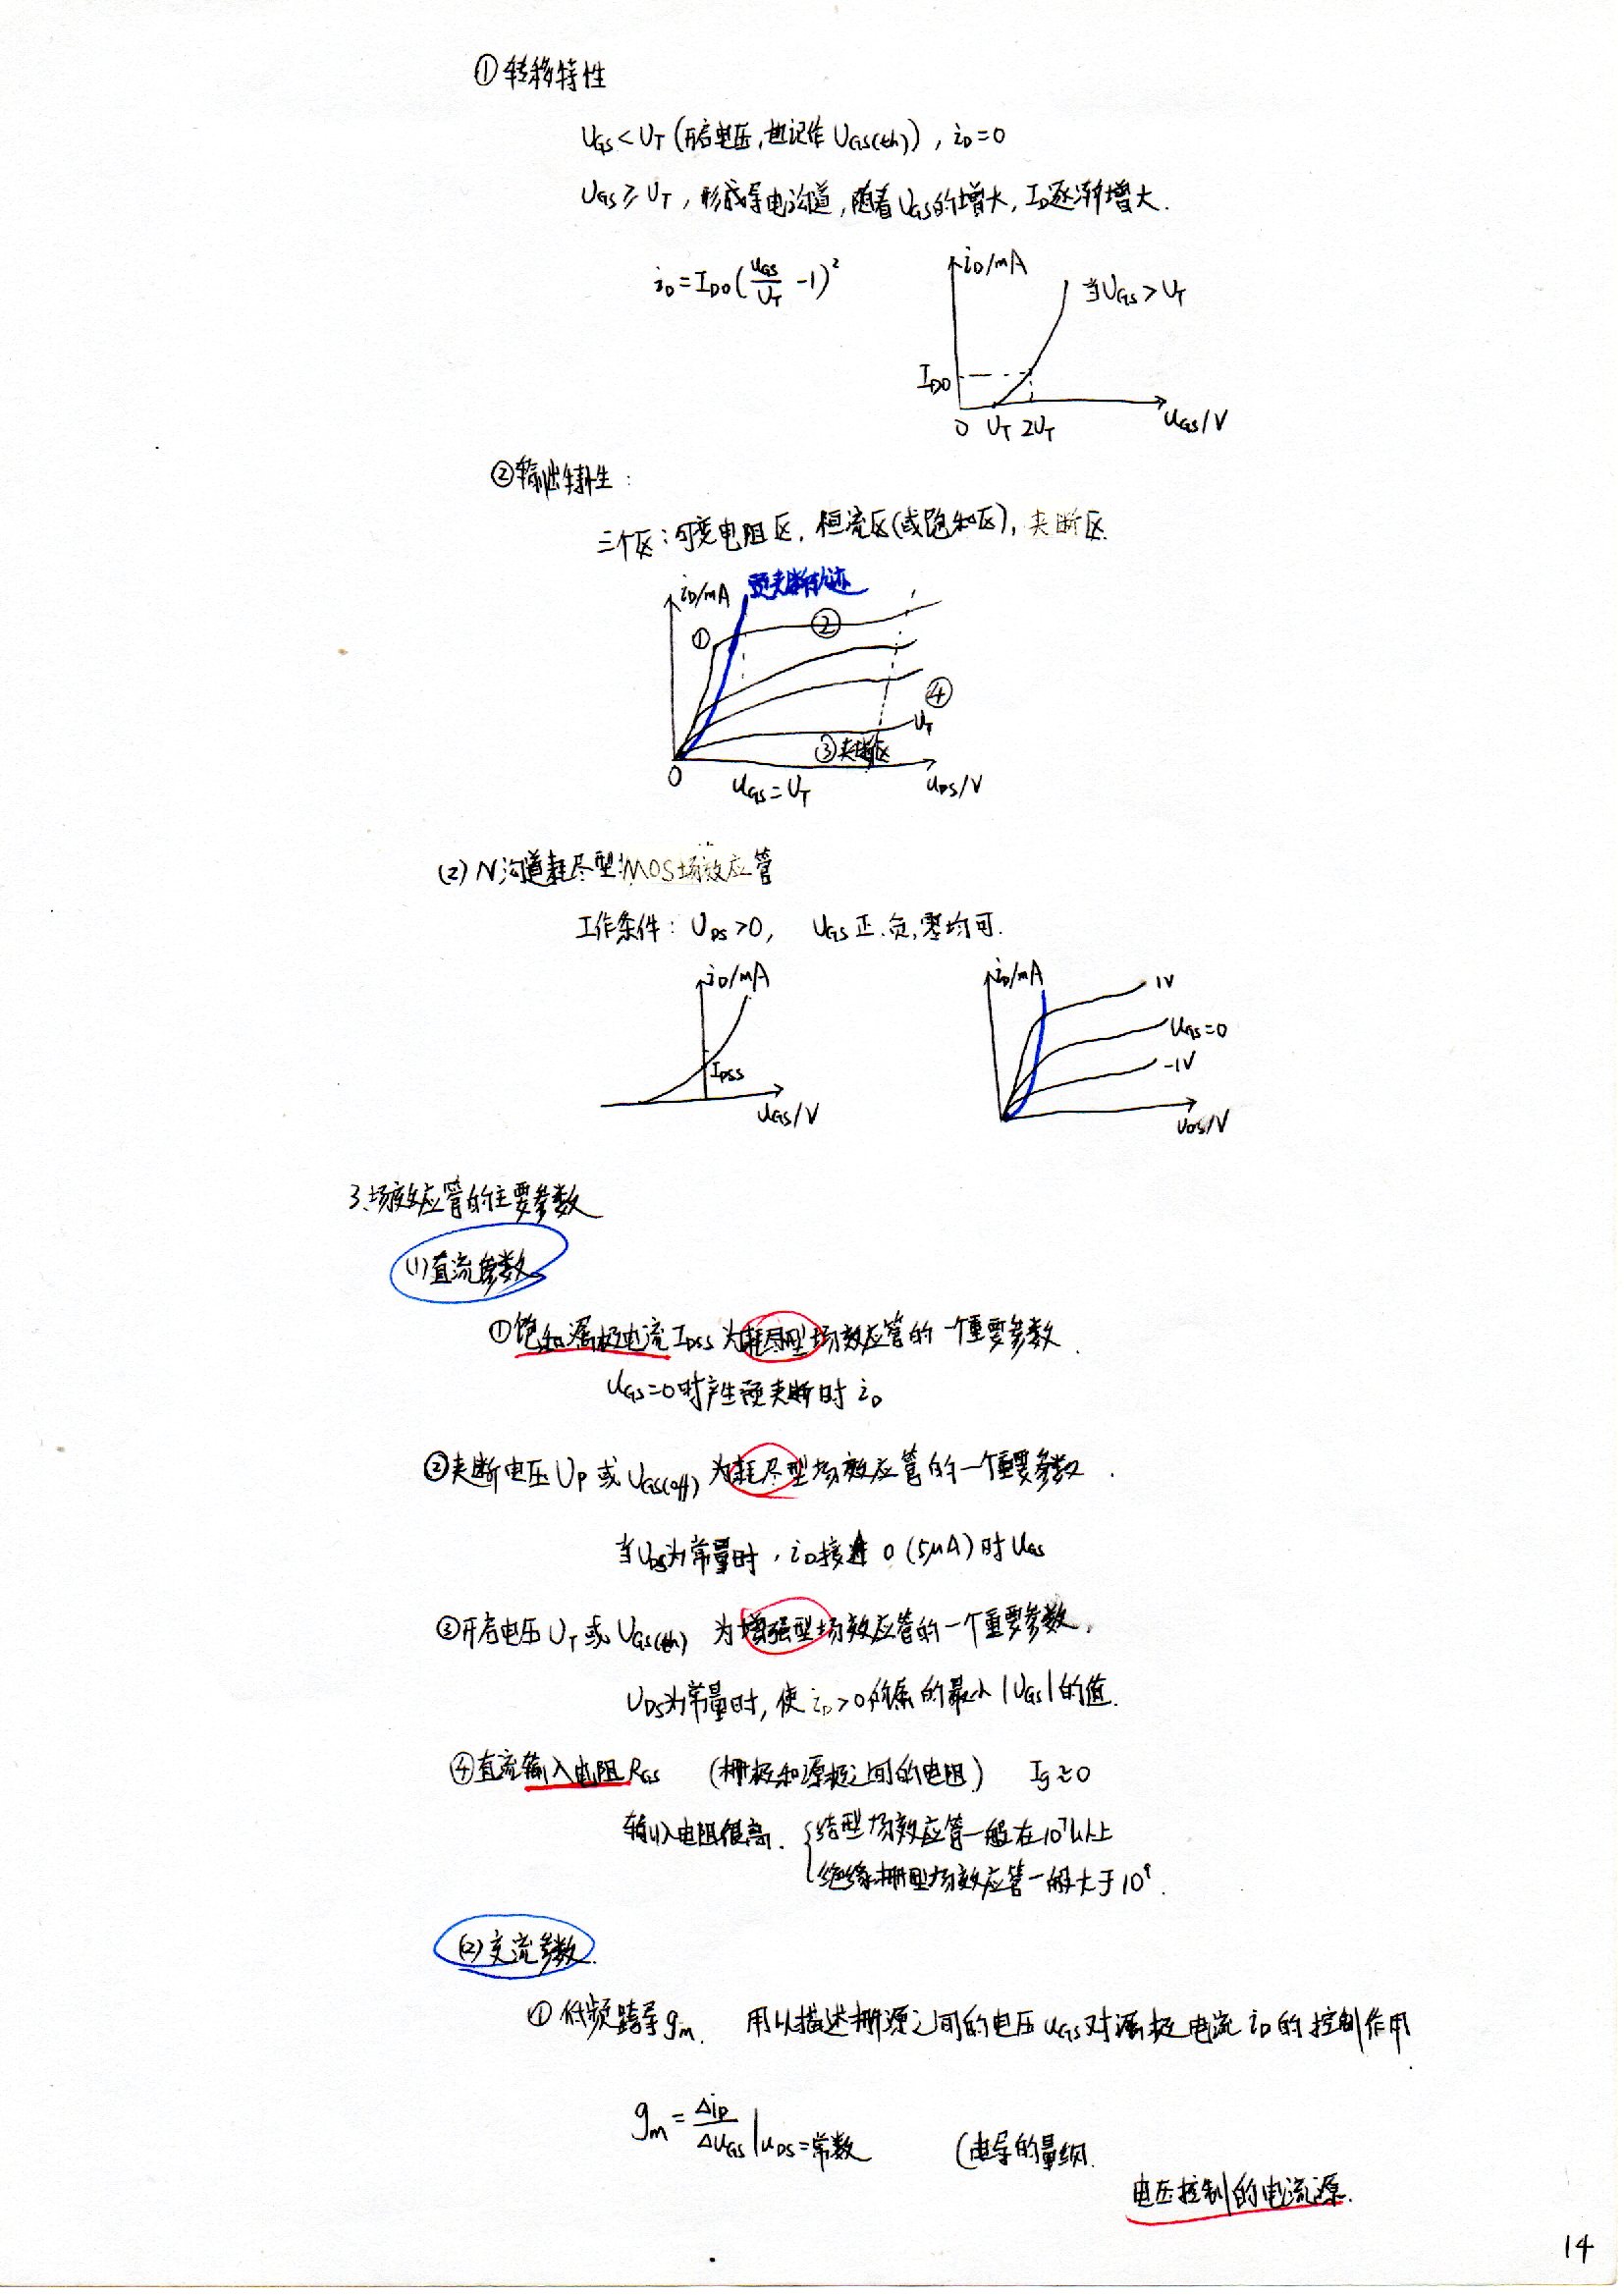 ①转移特性
UGS<UT(开启电压,也记作UGS(th)), iD=0
UGS≥UT, 形成导电沟道,随着UGS的增大, ID逐渐增大.
iD=IDO(uGS/UT -1)²
iD/mA
当UGS>UT
IDO
0 UT 2UT
uGS/V
②输出特性:
三个区:可变电阻区, 恒流区(或饱和区), 夹断区.
iD/mA
预夹断轨迹
①
②
④
UT
③夹断区
0
uGS=UT
uDS/V
(2) N沟道耗尽型MOS场效应管
工作条件: UDS>0, UGS正.负,零均可.
iD/mA
IDSS
uGS/V
iD/mA
1V
uGS=0
-1V
uDS/V
3.场效应管的主要参数
(1)直流参数
①饱和漏极电流IDSS 为耗尽型场效应管的一个重要参数.
uGS=0时产生预夹断时iD
②夹断电压UP或UGS(off) 为耗尽型场效应管的一个重要参数.
当UDS为常量时, iD接近0(5μA)时uGS
③开启电压UT或UGS(th) 为增强型场效应管的一个重要参数,
UDS为常量时,使iD>0所需的最小|UGS|的值.
④直流输入电阻RGS (栅极和源极之间的电阻) Ig≈0
输入电阻很高. {结型场效应管一般在10⁷以上
绝缘栅型场效应管一般大于10⁹.
(2)交流参数.
①低频跨导gm. 用以描述栅源之间的电压uGS对漏极电流iD的控制作用.
gm=ΔiD/ΔuGS|uDS=常数 (电导的量纲.
电压控制的电流源.
14